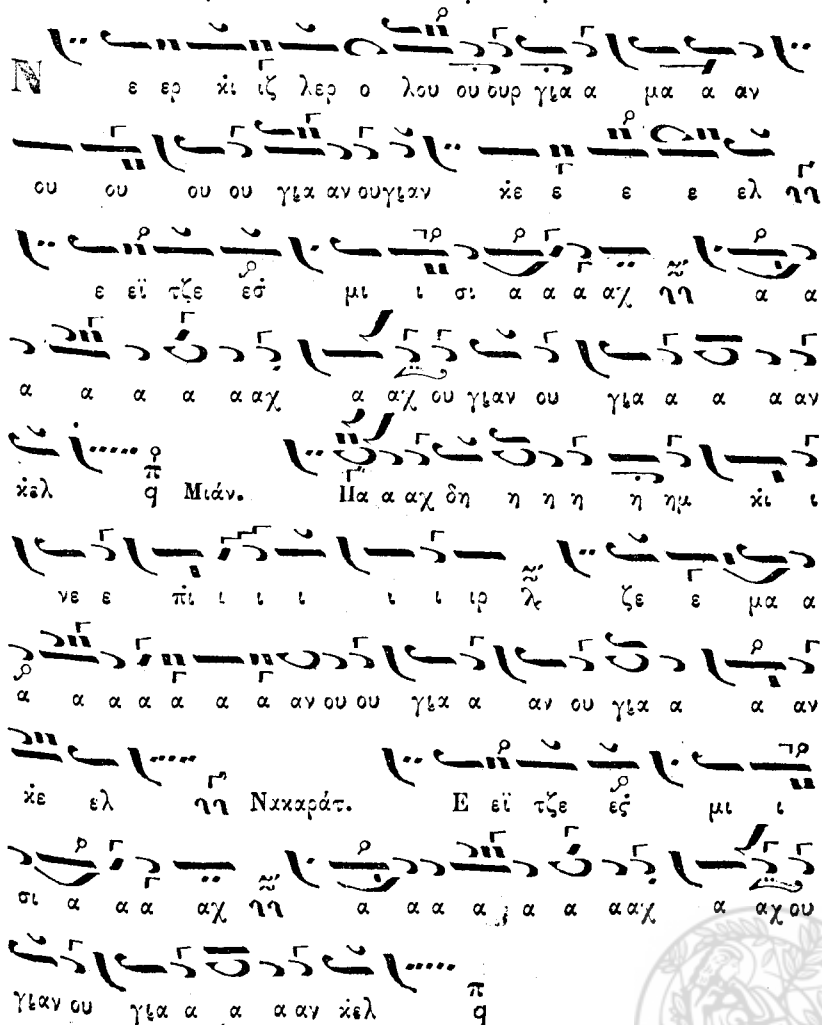 Ν ε ερ κ̇ι ιζ λερ ο λου ου ουρ γι̯α α μα α αν
ου ου ου ου γι̯α αν ουγι̯αν κ̇ε ε ε ε ελ
ε εϊ τζε εσ̇ μι ι σι α α α αχ α α
α α α α α αχ α αχ ου γι̯αν ου γι̯α α α α αν
κ̇ελ π q Μιάν. Πα α αχ δη η η η η ημ κ̇ι ι
νε ε π̇ι ι ι ι ι ι ιρ λ ζε ε μα α
α α α α α α α αν ου ου γι̯α α αν ου γι̯α α α αν
κ̇ε ελ Νακαράτ. Ε εϊ τζε εσ̇ μι ι
σι α α α αχ α α α α α α α αχ α αχ ου
γι̯αν ου γι̯α α α α αν κ̇ελ π q